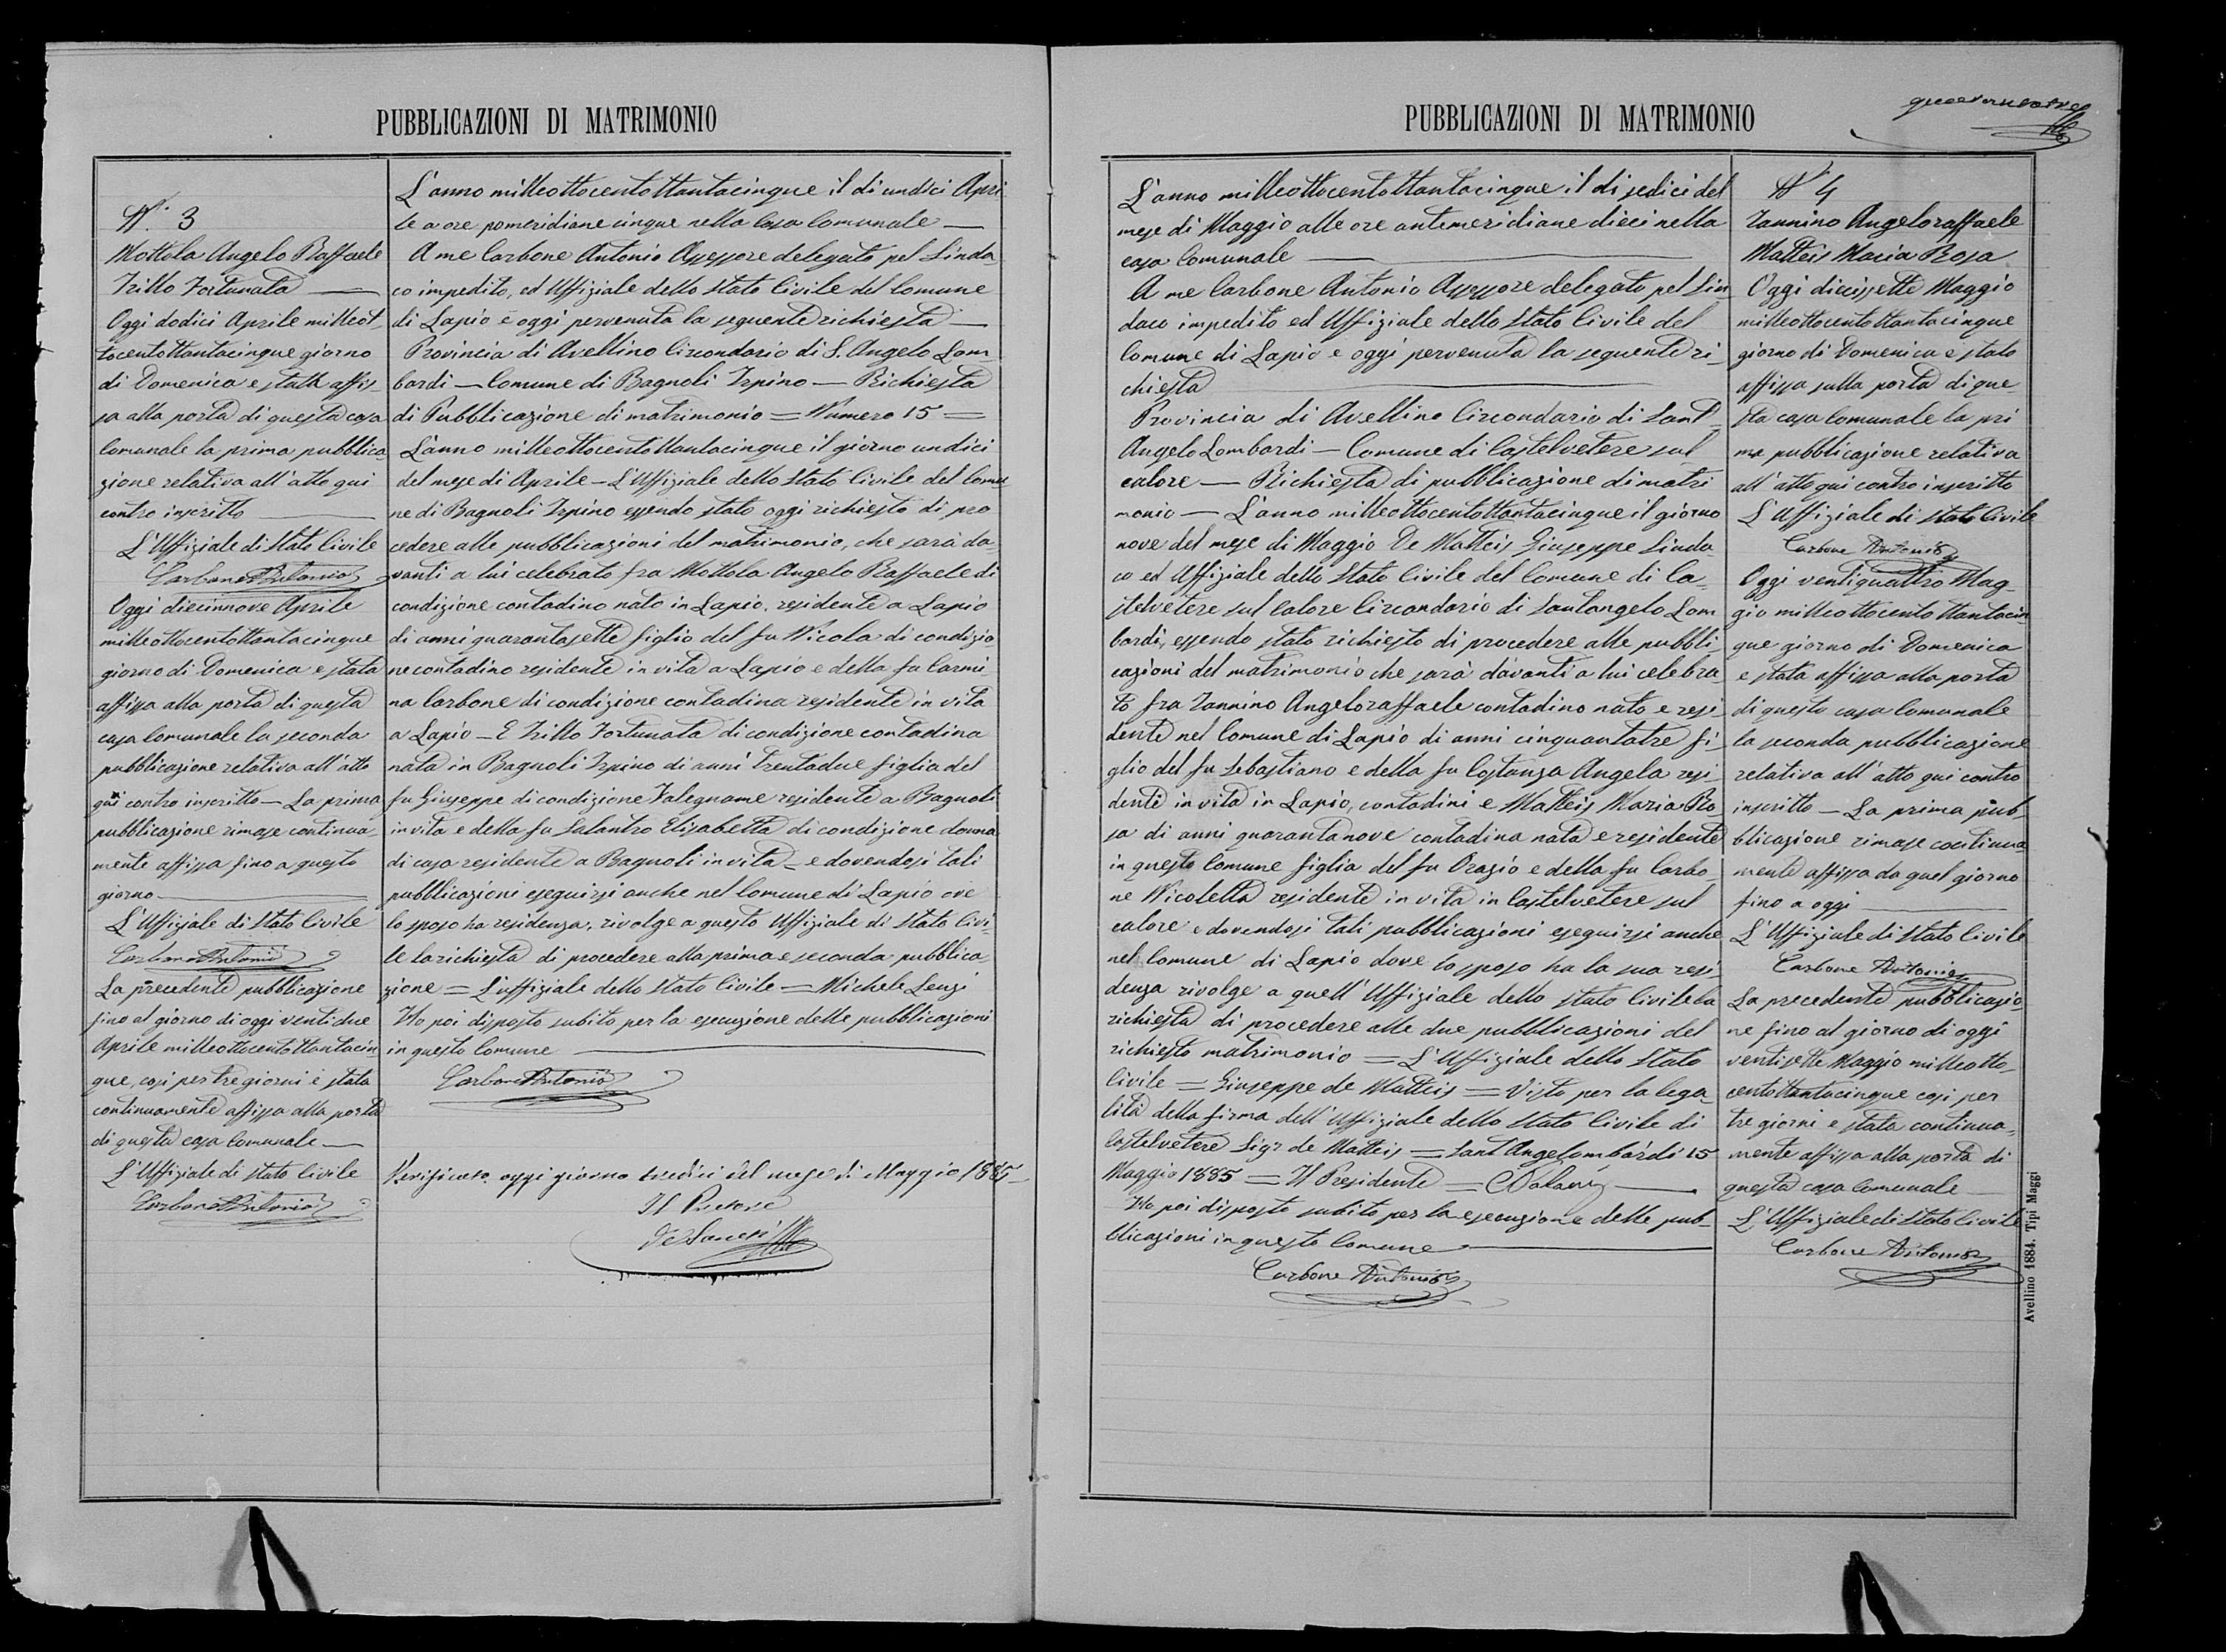 PUBBLICAZIONI DI MATRIMONIO
N. 3
Mottola Angelo Raffaele
Trillo Fortunata
Oggi dodici Aprile milleot
tocentottantacinque giorno
di Domenica e stata affis-
sa alla porta di questa casa
Comunale la prima pubblica
zione relativa all'atto qui
contro inscritto
L'Uffiziale di Stato Civile
Carbone Antonio
Oggi diecinnove Aprile
milleottocentottantacinque
giorno di Domenica e stata
affissa alla porta di questa
casa Comunale la seconda
pubblicazione relativa all'atto
qui contro inscritto — La prima
pubblicazione rimase continua-
mente affissa fino a questo
giorno
L'Uffiziale di Stato Civile
Carbone Antonio
La precedente pubblicazione
fino al giorno di oggi ventidue
Aprile milleottocentottantacin
que, così per tre giorni è stata
continuamente affissa alla porta
di questa casa Comunale
L'Uffiziale di Stato Civile
Carbone Antonio
L'anno milleottocentottantacinque il di undici Apri
le a ore pomeridiane cinque nella Casa Comunale
A me Carbone Antonio Assessore delegato pel Sinda
co impedito, ed Uffiziale dello Stato Civile del Comune
di Lapio è oggi pervenuta la seguente richiesta
Provincia di Avellino Circondario di S. Angelo Lom
bardi — Comune di Bagnoli Irpino — Richiesta
di Pubblicazione di matrimonio = Numero 15 =
L'anno milleottocentottantacinque il giorno undici
del mese di Aprile — L'Uffiziale dello Stato Civile del Comu
ne di Bagnoli Irpino essendo stato oggi richiesto di pro
cedere alle pubblicazioni del matrimonio, che sarà da-
vanti a lui celebrato fra Mottola Angelo Raffaele di
condizione contadino nato in Lapio, residente a Lapio
di anni quarantasette figlio del fu Nicola di condizio
ne contadino residente in vita a Lapio e della fu Carmi
na Carbone di condizione contadina residente in vita
a Lapio — E Trillo Fortunata di condizione contadina
nata in Bagnoli Irpino di anni trentadue figlia del
fu Giuseppe di condizione Falegname residente a Bagnoli
in vita e della fu Salantro Elisabetta di condizione donna
di casa residente a Bagnoli in vita — e dovendosi tali
pubblicazioni eseguirsi anche nel Comune di Lapio ove
lo sposo ha residenza, rivolge a questo Uffiziale di Stato Civi-
le la richiesta di procedere alla prima e seconda pubblica
zione = L'uffiziale dello Stato Civile = Michele Lenzi
Ho poi disposto subito per la esecuzione delle pubblicazioni
in questo Comune
Carbone Antonio
Verificato oggi giorno tredici del mese di Maggio 1885
Il Pretore
PUBBLICAZIONI DI MATRIMONIO
L'anno milleottocentottantacinque il di sedici del
mese di Maggio alle ore antimeridiane dieci nella
casa Comunale
A me Carbone Antonio Assessore delegato pel Sin
daco impedito ed Uffiziale dello Stato Civile del
Comune di Lapio e oggi pervenuta la seguente ri-
chiesta
Provincia di Avellino Circondario di Sant'
Angelo Lombardi — Comune di Castelvetere sul
calore — Richiesta di pubblicazione di matri
monio — L'anno milleottocentottantacinque il giorno
nove del mese di Maggio De Matteis Giuseppe Sinda-
co ed Uffiziale dello Stato Civile del Comune di Ca-
stelvetere sul Calore Circondario di Santangelo Lom
bardi, essendo stato richiesto di procedere alle pubbli-
cazioni del matrimonio che sarà davanti a lui celebra-
to fra Iannino Angeloraffaele contadino nato e resi-
dente nel Comune di Lapio di anni cinquantatre fi-
glio del fu Sebastiano e della fu Costanza Angela resi-
denti in vita in Lapio, contadini e Matteis Maria Ro-
sa di anni quarantanove contadina nata e residente
in questo Comune figlia del fu Orazio e della fu Carbo-
ne Nicoletta residente in vita in Castelvetere sul
calore e dovendosi tali pubblicazioni eseguirsi anche
nel Comune di Lapio dove lo sposo ha la sua resi
denza rivolge a quell'Uffiziale dello Stato Civile la
richiesta di procedere alle due pubblicazioni del
richiesto matrimonio = L'Uffiziale dello Stato
Civile = Giuseppe de Matteis = Visto per la lega-
lità della firma dell'Uffiziale dello Stato Civile di
Castelvetere Sigr de Matteis = Sant'Angelombardi 15
Maggio 1885 = Il Presidente =
Ho poi disposto subito per la esecuzione delle pub-
blicazioni in questo Comune
Carbone Antonio
N. 4
Iannino Angeloraffaele
Matteis Maria Rosa
Oggi diecissette Maggio
milleottocentottantacinque
giorno di Domenica e stato
affissa sulla porta di que-
sta casa Comunale la pri
ma pubblicazione relativa
all'atto qui contro inscritto
L'Uffiziale di Stato Civile
Carbone Antonio
Oggi ventiquattro Mag-
gio milleottocentottantacin
que giorno di Domenica
e stata affissa alla porta
di questa casa Comunale
la seconda pubblicazione
relativa all'atto qui contro
inscritto — La prima pub-
blicazione rimase continua-
mente affissa da quel giorno
fino a oggi
L'Uffiziale di Stato Civile
Carbone Antonio
La precedente pubblicazio-
ne fino al giorno di oggi
ventisette Maggio milleotto-
centottantacinque così per
tre giorni e stata continua-
mente affissa alla porta di
questa casa Comunale
L'Uffiziale di Stato Civile
Carbone Antonio
Avellino 1884. Tipi Maggi